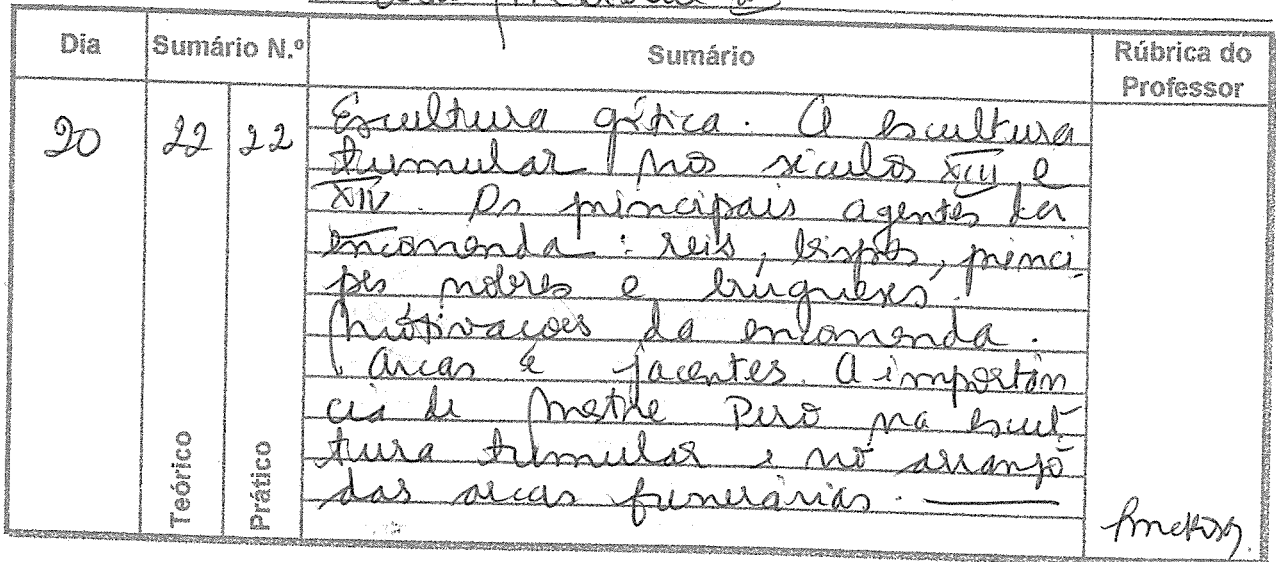 Dia Sumário N.º Sumário Rúbrica do Professor
20 22 22
Escultura gótica. A escultura
tumular nos séculos XIII e
XIV. Os principais agentes da
encomenda: reis, bispos, prínci
pes nobres e burgueses.
Motivações da encomenda.
Arcas e jacentes. A importân
cia de Mestre Pero na escul
tura tumular e no arranjo
das arcas funerárias.
Teórico Prático